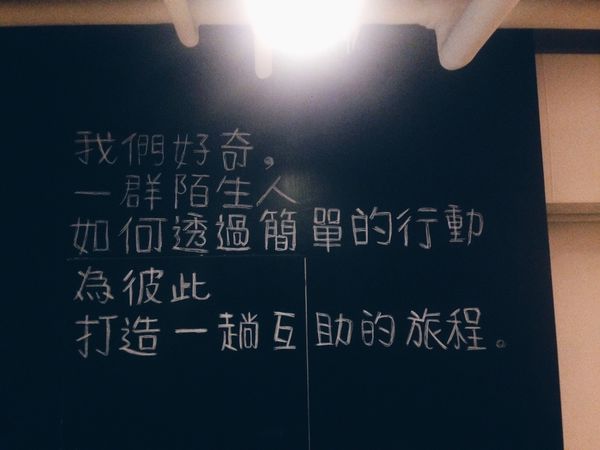 我們好奇，
一群陌生人
如何透過簡單的行動
為彼此
打造一趟互助的旅程。